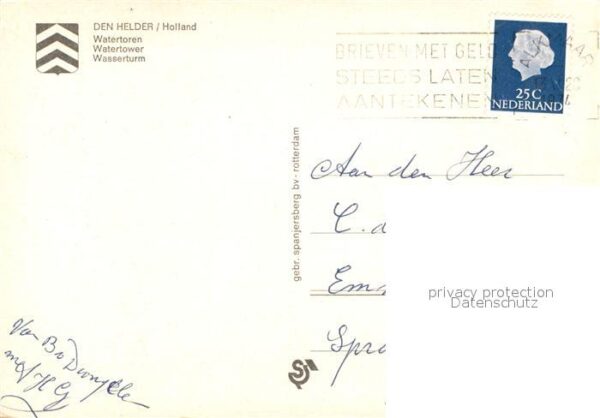 DEN HELDER / Holland
Watertoren
Watertower
Wasserturm
BRIEVEN MET GELD
STEEDS LATEN
AANTEKENEN
25 C
NEDERLAND
gebr. spanjersberg bv - rotterdam
Aan den Heer
C. d
Em
Spr
privacy protection
Datenschutz
Van
met H G